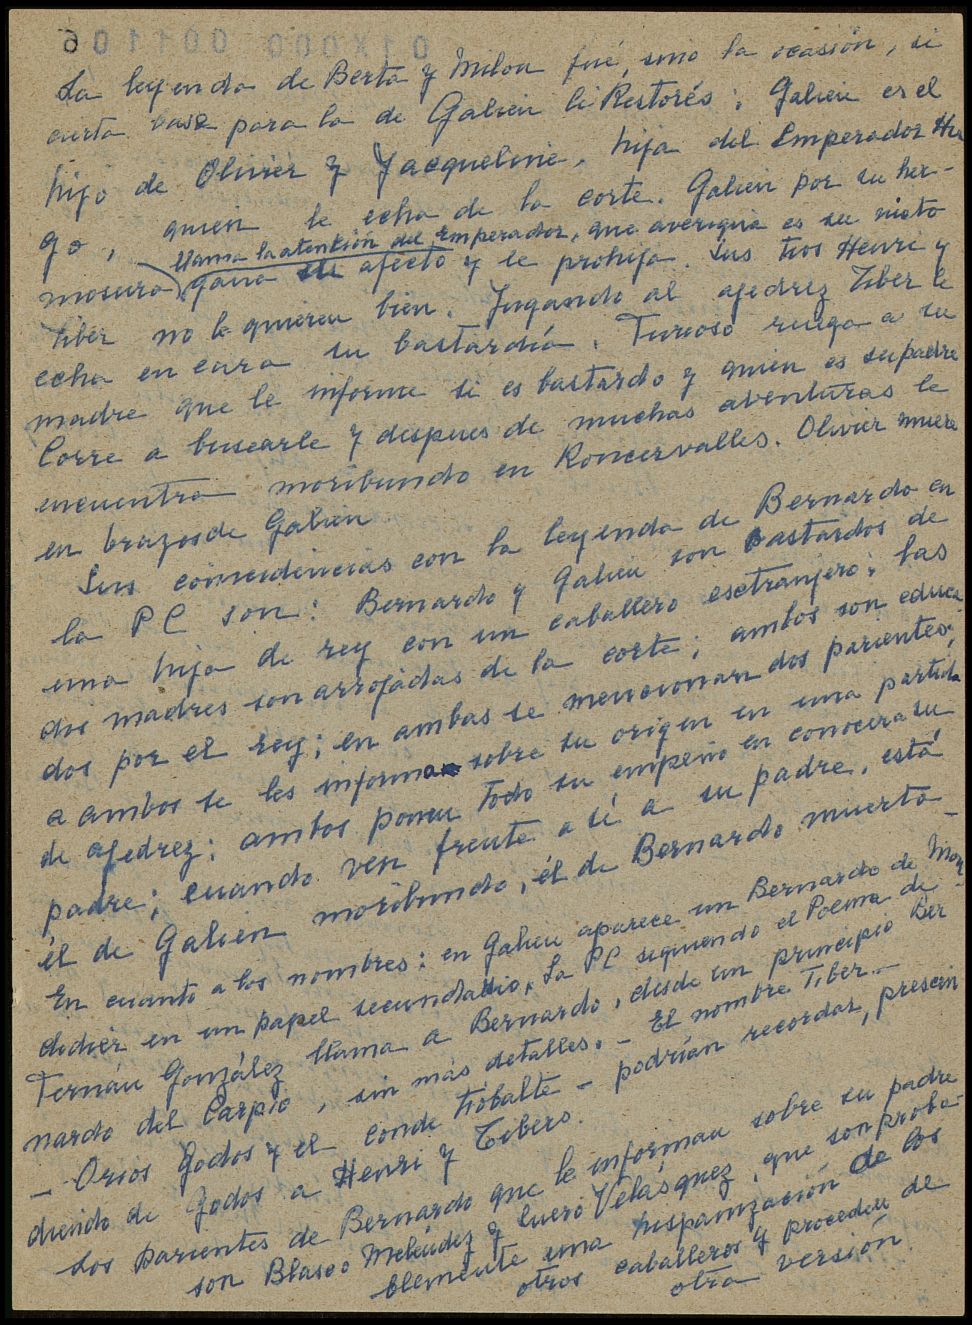 La leyenda de Berta y Milon fué, sino la ocasión, si
cierta base para la de Galien li Restorés: Galien es el
hijo de Olivier y Jacqueline, hija del Emperador Hu
go, quien le echa de la corte. Galien por su her-
llama la atención del Emperador, que averigua es su nieto
mosura gana su afecto y le prohija. Sus tios Henri y
Tiber no le quieren bien. Jugando al ajedrez Tiber le
echa en cara su bastardía. Furioso ruega a su
madre que le informe si es bastardo y quien es su padre
Corre a buscarle y despues de muchas aventuras le
encuentra moribundo en Roncervalles. Olivier muere
en brazos de Galien
Sus coincidencias con la leyenda de Bernardo en
la PC son: Bernardo y Galien son bastardos de
una hija de rey con un caballero esctranjero; las
dos madres son arrojadas de la corte; ambos son educa
dos por el rey; en ambas se mencionan dos parientes;
a ambos se les informa sobre su origen en una partida
de ajedrez; ambos ponen todo su empeño en conocer a su
padre; cuando ven frente a sí a su padre, está
él de Galien moribundo, él de Bernardo muerto
En cuanto a los nombres: en Galien aparece un Bernardo de Mon-
didier en un papel secundario, La PC siguiendo el Poema de
Fernán González llama a Bernardo, desde un principio Ber
nardo del Carpio, sin más detalles. - El nombre Tiber -
- Orios Godos y el conde Tiobalte - podrían recordar, prescin
diendo de Godos a Henri y Tibero.
Los parientes de Bernardo que le informan sobre su padre
son Blasco Meléndez y Suero Velásquez, que son proba-
blemente una hispanización de los
otros caballeros y proceden de
otra versión.